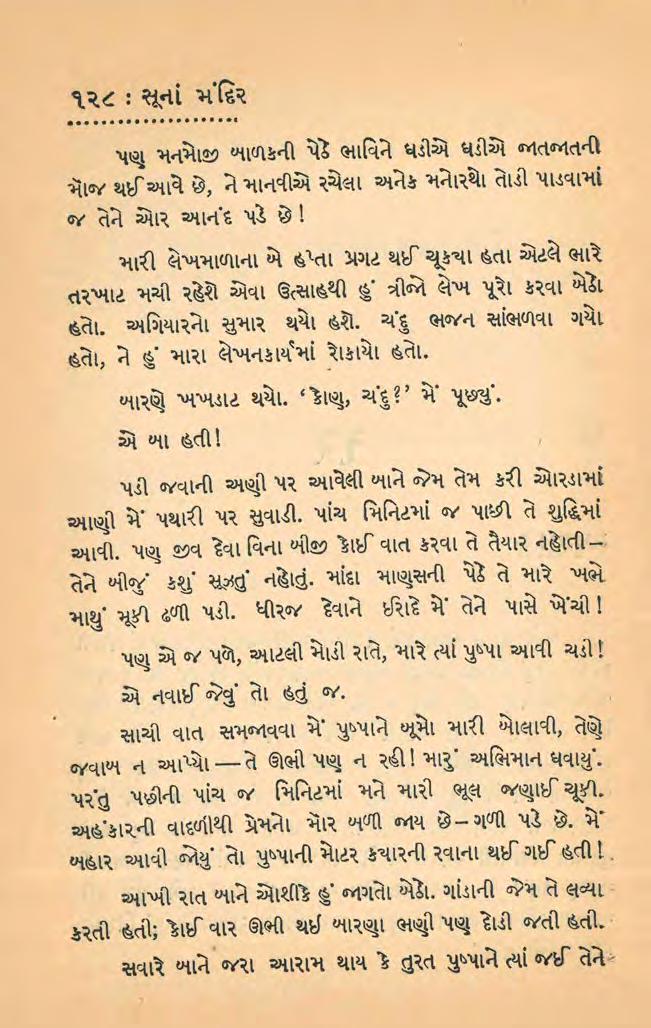 ૧૨૮ : સૂનાં મંદિર
પણ મનમોજી બાળકની પેઠે ભાવિને ઘડીએ ઘડીએ જાતજાતની
મૉજ થઈ આવે છે, ને માનવીએ રચેલા અનેક મનોરથો તોડી પાડવામાં
જ તેને ઓર આનંદ પડે છે !
મારી લેખમાળાના બે હપ્તા પ્રગટ થઈ ચૂકયા હતા એટલે ભારે
તરખાટ મચી રહેશે એવા ઉત્સાહથી હું ત્રીજો લેખ પૂરો કરવા બેઠો
હતો. અગિયારનો સુમાર થયો હશે. ચંદુ ભજન સાંભળવા ગયો
હતો, ને હું મારા લેખનકાર્યમાં રોકાયો હતો.
બારણે ખખડાટ થયો. ‘કોણ, ચંદુ?’ મેં પૂછ્યું.
એ બા હતી!
પડી જવાની અણી પર આવેલી બાને જેમ તેમ કરી ઓરડામાં
આણી મેં પથારી પર સુવાડી. પાંચ મિનિટમાં જ પાછી તે શુદ્ધિમાં
આવી. પણ જીવ દેવા વિના બીજી કોઈ વાત કરવા તે તૈયાર નહોતી–
તેને બીજું કશું સૂઝતું નહોતું. માંદા માણસની પેઠે તે મારે ખભે
માથું મૂકી ઢળી પડી. ધીરજ દેવાને ઈરાદે મેં તેને પાસે ખેંચી!
પણ એ જ પળે, આટલી મોડી રાતે, મારે ત્યાં પુષ્પા આવી ચડી!
એ નવાઈ જેવું તો હતું જ.
સાચી વાત સમજાવવા મેં પુષ્પાને બૂમો મારી બોલાવી, તેણે
જવાબ ન આપ્યો — તે ઊભી પણ ન રહી! મારું અભિમાન ઘવાયું.
પરંતુ પછીની પાંચ જ મિનિટમાં મને મારી ભૂલ જણાઈ ચૂકી.
અહંકારની વાદળીથી પ્રેમનો મૉર બળી જાય છે – ગળી પડે છે. મેં
બહાર આવી જોયું તો પુષ્પાની મોટર કયારની રવાના થઈ ગઈ હતી!
આખી રાત બાને ઓશીકે હું જાગતો બેઠો. ગાંડાની જેમ તે લવ્યા
કરતી હતી; કોઈ વાર ઊભી થઈ બારણા ભણી પણ દોડી જતી હતી.
સવારે બાને જરા આરામ થાય કે તુરત પુષ્પાને ત્યાં જઈ તેને